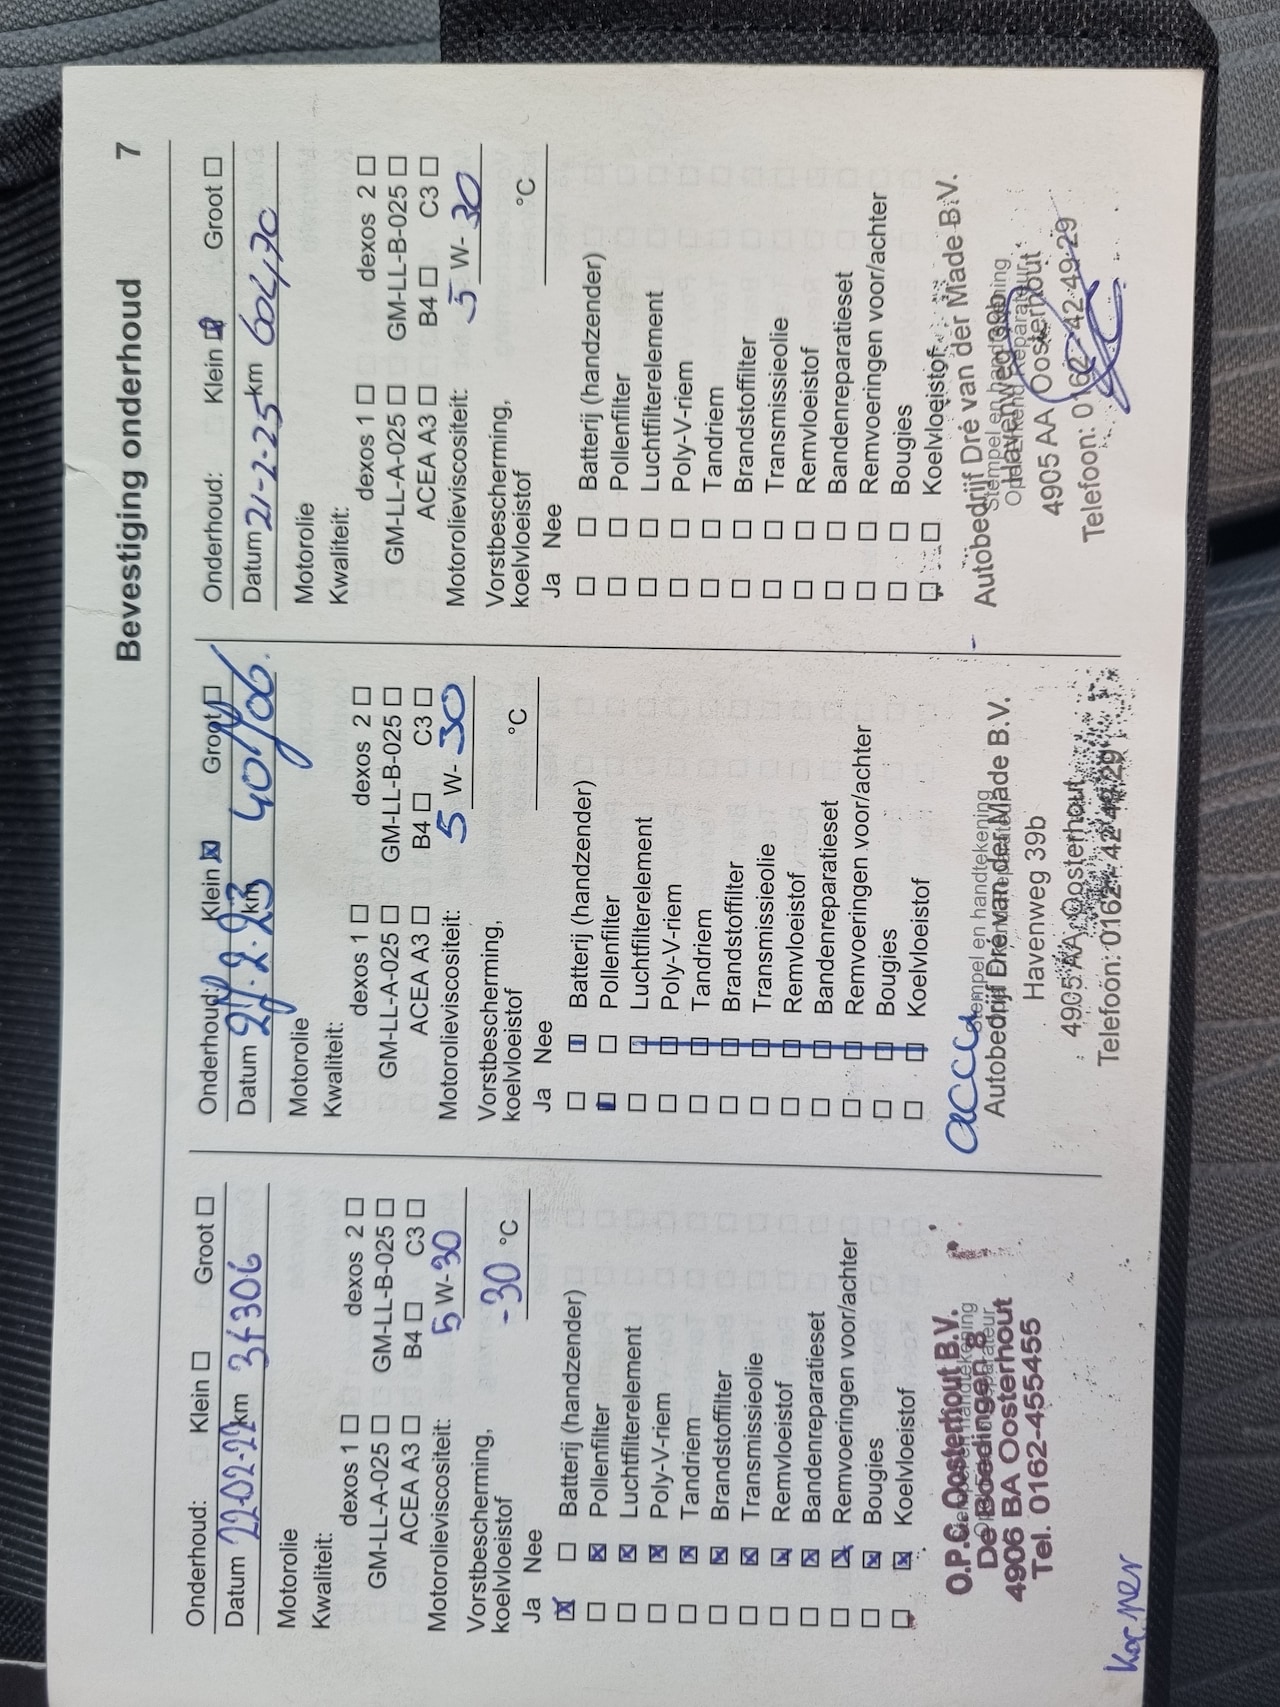 Bevestiging onderhoud 7
Onderhoud: Klein Groot
Datum 22-02-22 km
Motorolie
Kwaliteit:
dexos 1 dexos 2
GM-LL-A-025 GM-LL-B-025
ACEA A3 B4 C3
Motorolieviscositeit: 5 W-30
Vorstbescherming,
koelvloeistof -30 °C
Ja Nee
Batterij (handzender)
Pollenfilter
Luchtfilterelement
Poly-V-riem
Tandriem
Brandstoffilter
Transmissieolie
Remvloeistof
Bandenreparatieset
Remvoeringen voor/achter
Bougies
Koelvloeistof
Stempel en handtekening
O.P.C. Oosterhout B.V.
De Boedingen 8
4906 BA Oosterhout
Tel. 0162-455455
Onderhoud: Klein Groot
Datum km
Motorolie
Kwaliteit:
dexos 1 dexos 2
GM-LL-A-025 GM-LL-B-025
ACEA A3 B4 C3
Motorolieviscositeit: 5 W-30
Vorstbescherming,
koelvloeistof °C
Ja Nee
Batterij (handzender)
Pollenfilter
Luchtfilterelement
Poly-V-riem
Tandriem
Brandstoffilter
Transmissieolie
Remvloeistof
Bandenreparatieset
Remvoeringen voor/achter
Bougies
Koelvloeistof
accu
Stempel en handtekening
Autobedrijf Dré van der Made B.V.
Havenweg 39b
4905 AA Oosterhout
Telefoon: 0162 - 42 49 29
Onderhoud: Klein Groot
Datum 21-2-25 km 60470
Motorolie
Kwaliteit:
dexos 1 dexos 2
GM-LL-A-025 GM-LL-B-025
ACEA A3 B4 C3
Motorolieviscositeit: 5 W-30
Vorstbescherming,
koelvloeistof °C
Ja Nee
Batterij (handzender)
Pollenfilter
Luchtfilterelement
Poly-V-riem
Tandriem
Brandstoffilter
Transmissieolie
Remvloeistof
Bandenreparatieset
Remvoeringen voor/achter
Bougies
Koelvloeistof
Autobedrijf Dré van der Made B.V.
Stempel en handtekening
Opel Erkend Reparateur
Havenweg 39b
4905 AA Oosterhout
Telefoon: 0162 - 42 49 29